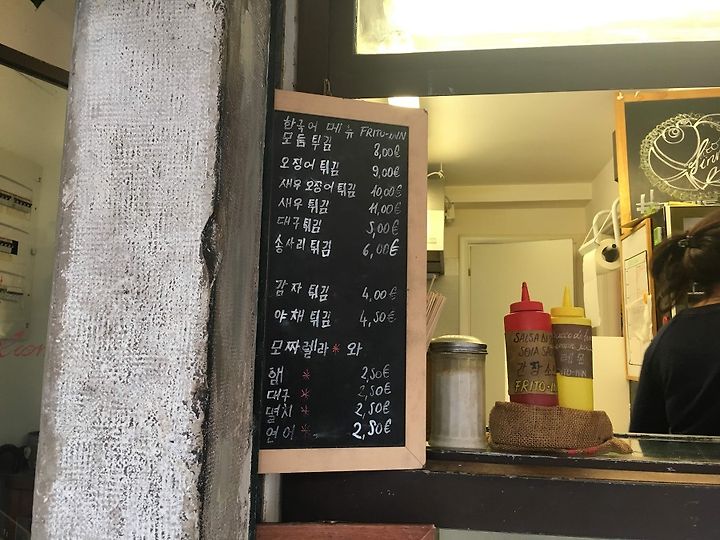 한국어 메뉴 FRITO-INN
모듬 튀김 8,00€
오징어 튀김 9,00€
새우 오징어 튀김 10,00€
새우 튀김 11,00€
대구 튀김 5,00€
송사리 튀김 6,00€
감자 튀김 4,00€
야채 튀김 4,50€
모짜렐라* 와
햄 * 2,50€
대구 * 2,50€
멸치 * 2,50€
연어 * 2,50€
SALSA DI
SOIA SA
간장 소
FRITO-
레모